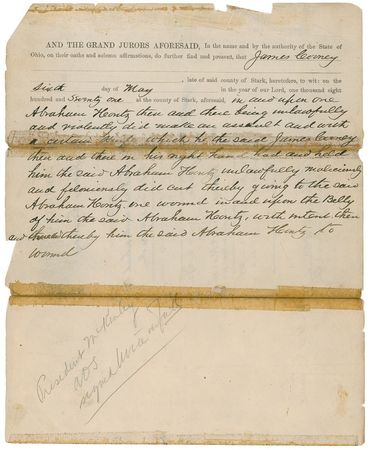 AND THE GRAND JURORS AFORESAID, In the name and by the authority of the State of
Ohio, on their oaths and solemn affirmations, do further find and present, that James Corney
, late of said county of Stark, heretofore, to wit: on the
Sixth day of May in the year of our Lord, one thousand eight
hundred and Seventy one at the county of Stark, aforesaid, in and upon one
Abraham Hentz then and there being unlawfully
and violently did make an assault and with
a certain knife which he the said James Corney
then and there in his right hand had and held
him the said Abraham Hentz unlawfully maliciously
and feloniously did cut thereby giving to the said
Abraham Hentz one wound in and upon the Belly
of him the said Abraham Hentz, with intent then
and thereby him the said Abraham Hentz to
wound
President McKinley
signed